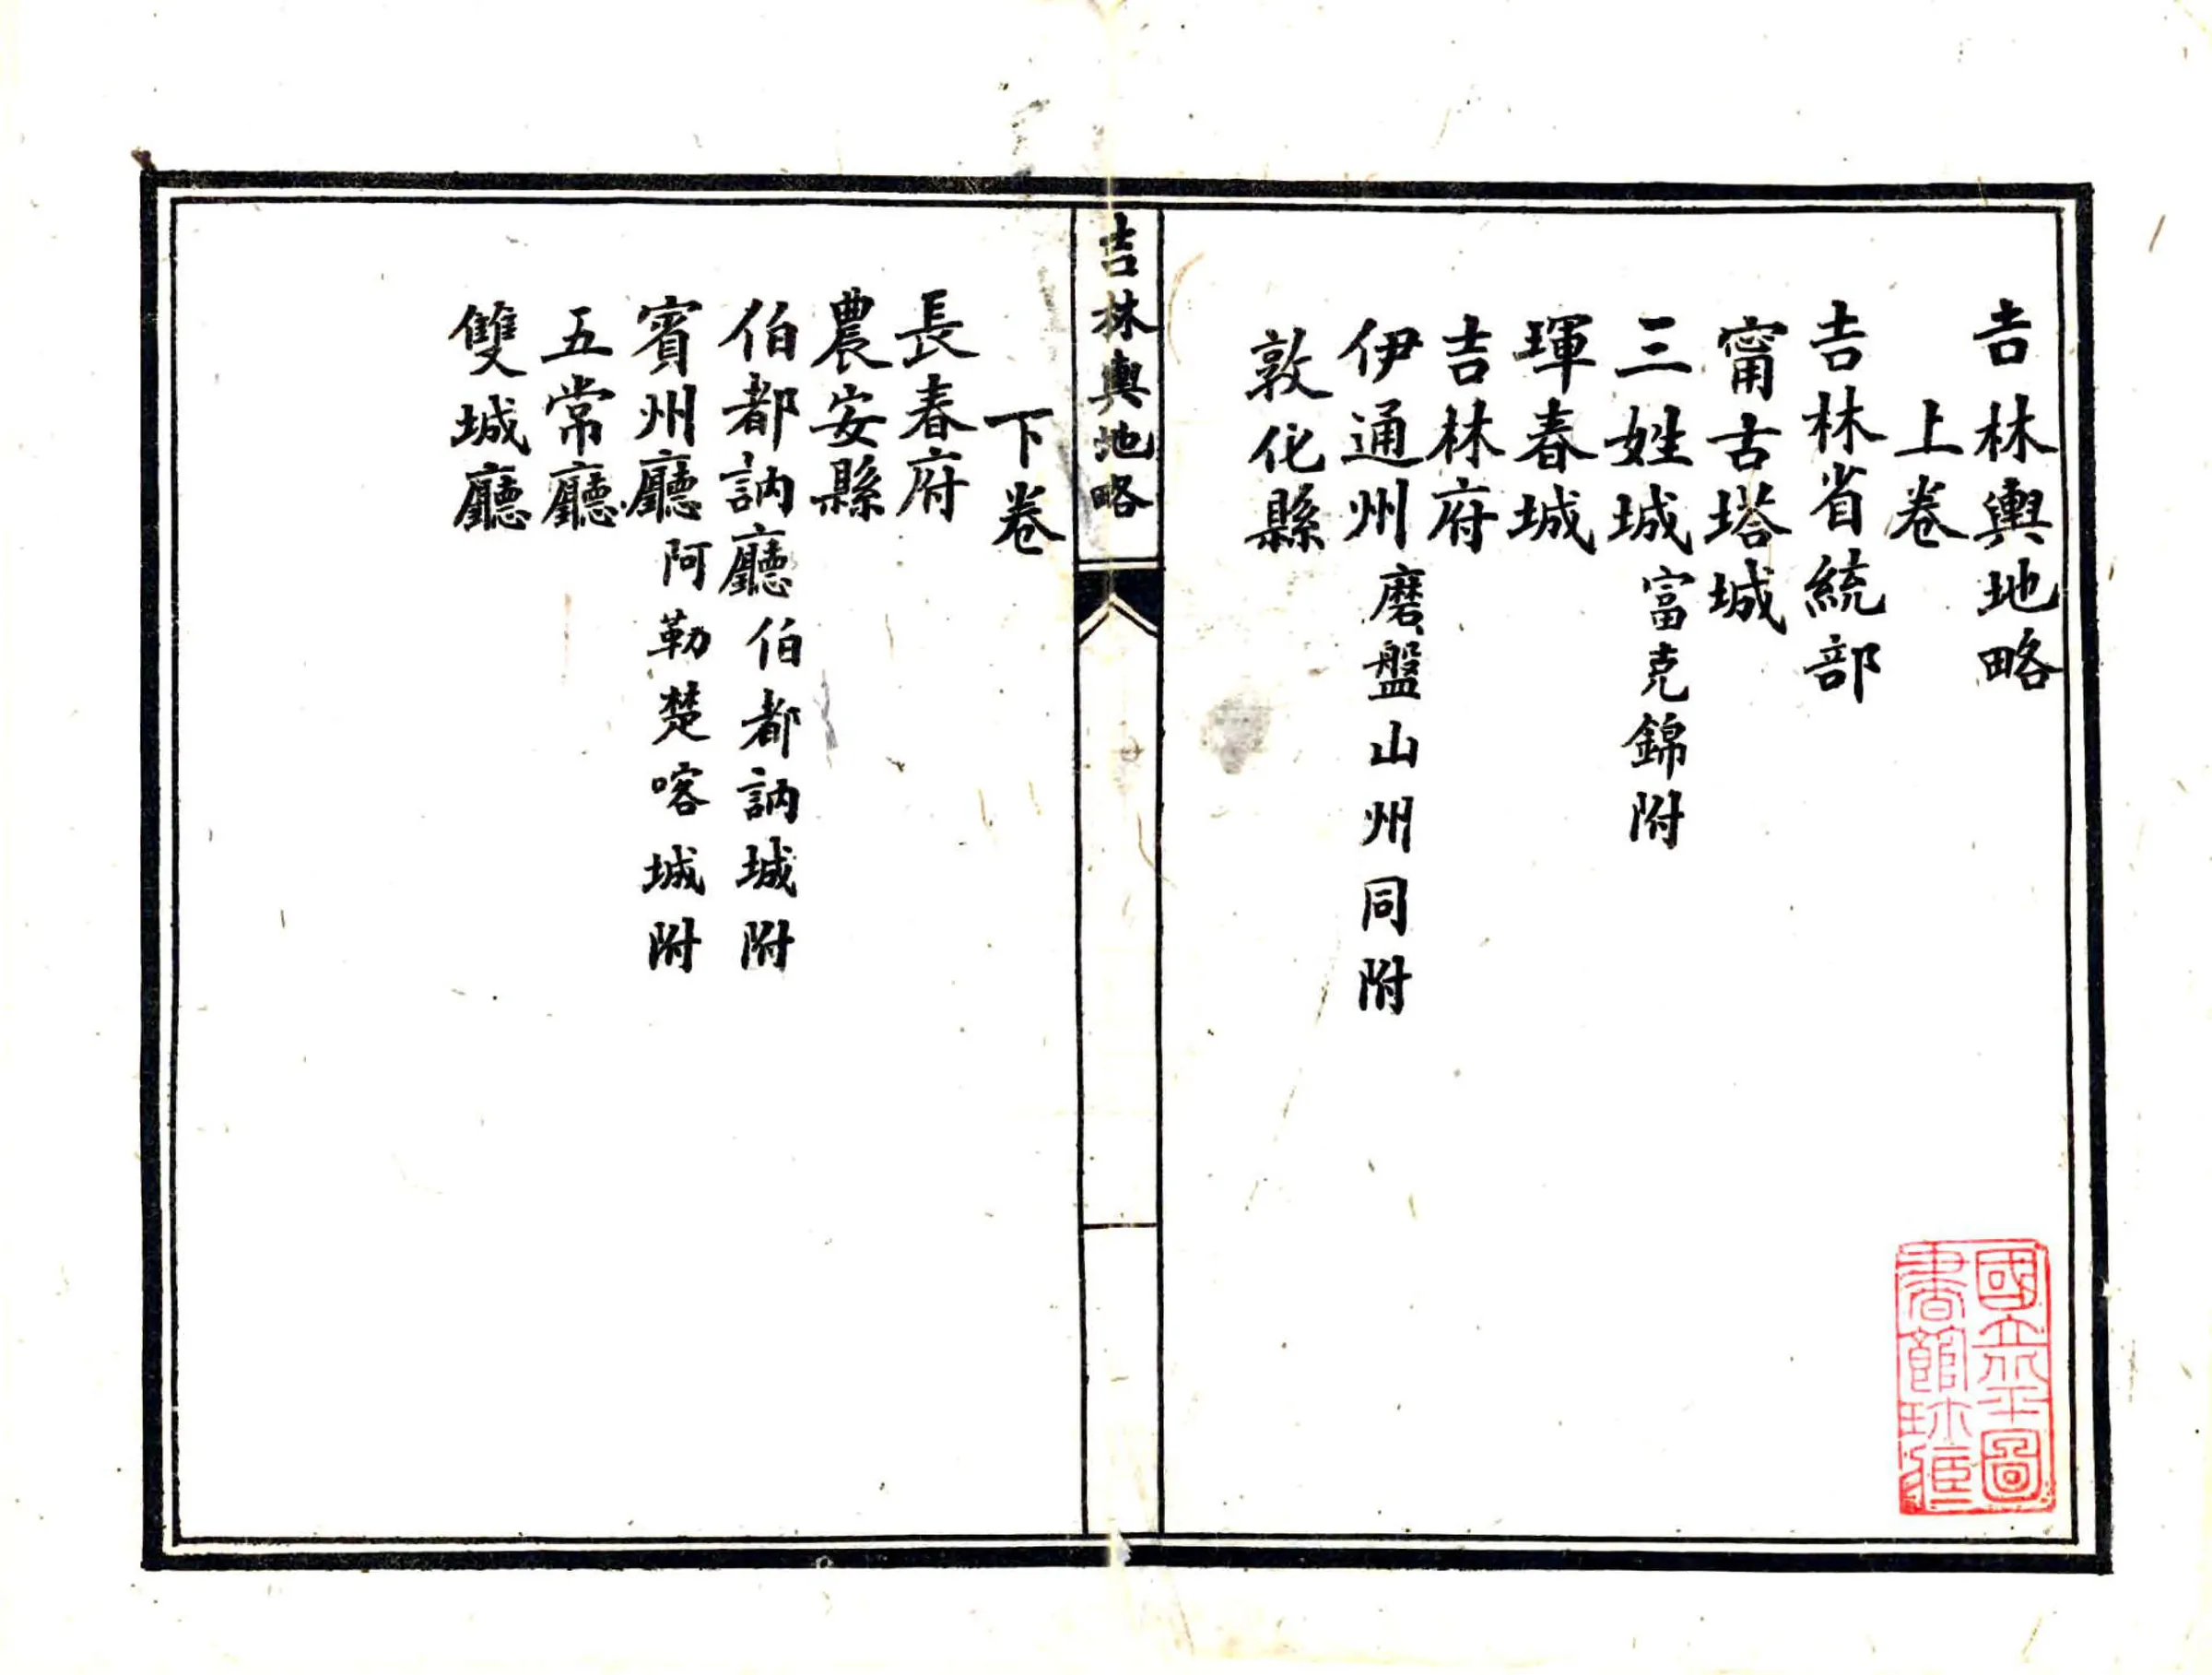 吉林輿地略
上卷
吉林省統部
甯古塔城
三姓城富克錦附
琿春城
吉林府
伊通州磨盤山州同附
敦化縣
吉林輿地略
下卷
長春府
農安縣
伯都訥廳伯都訥城附
賓州廳阿勒楚喀城附
五常廳
雙城廳
國立圖
書館珍藏